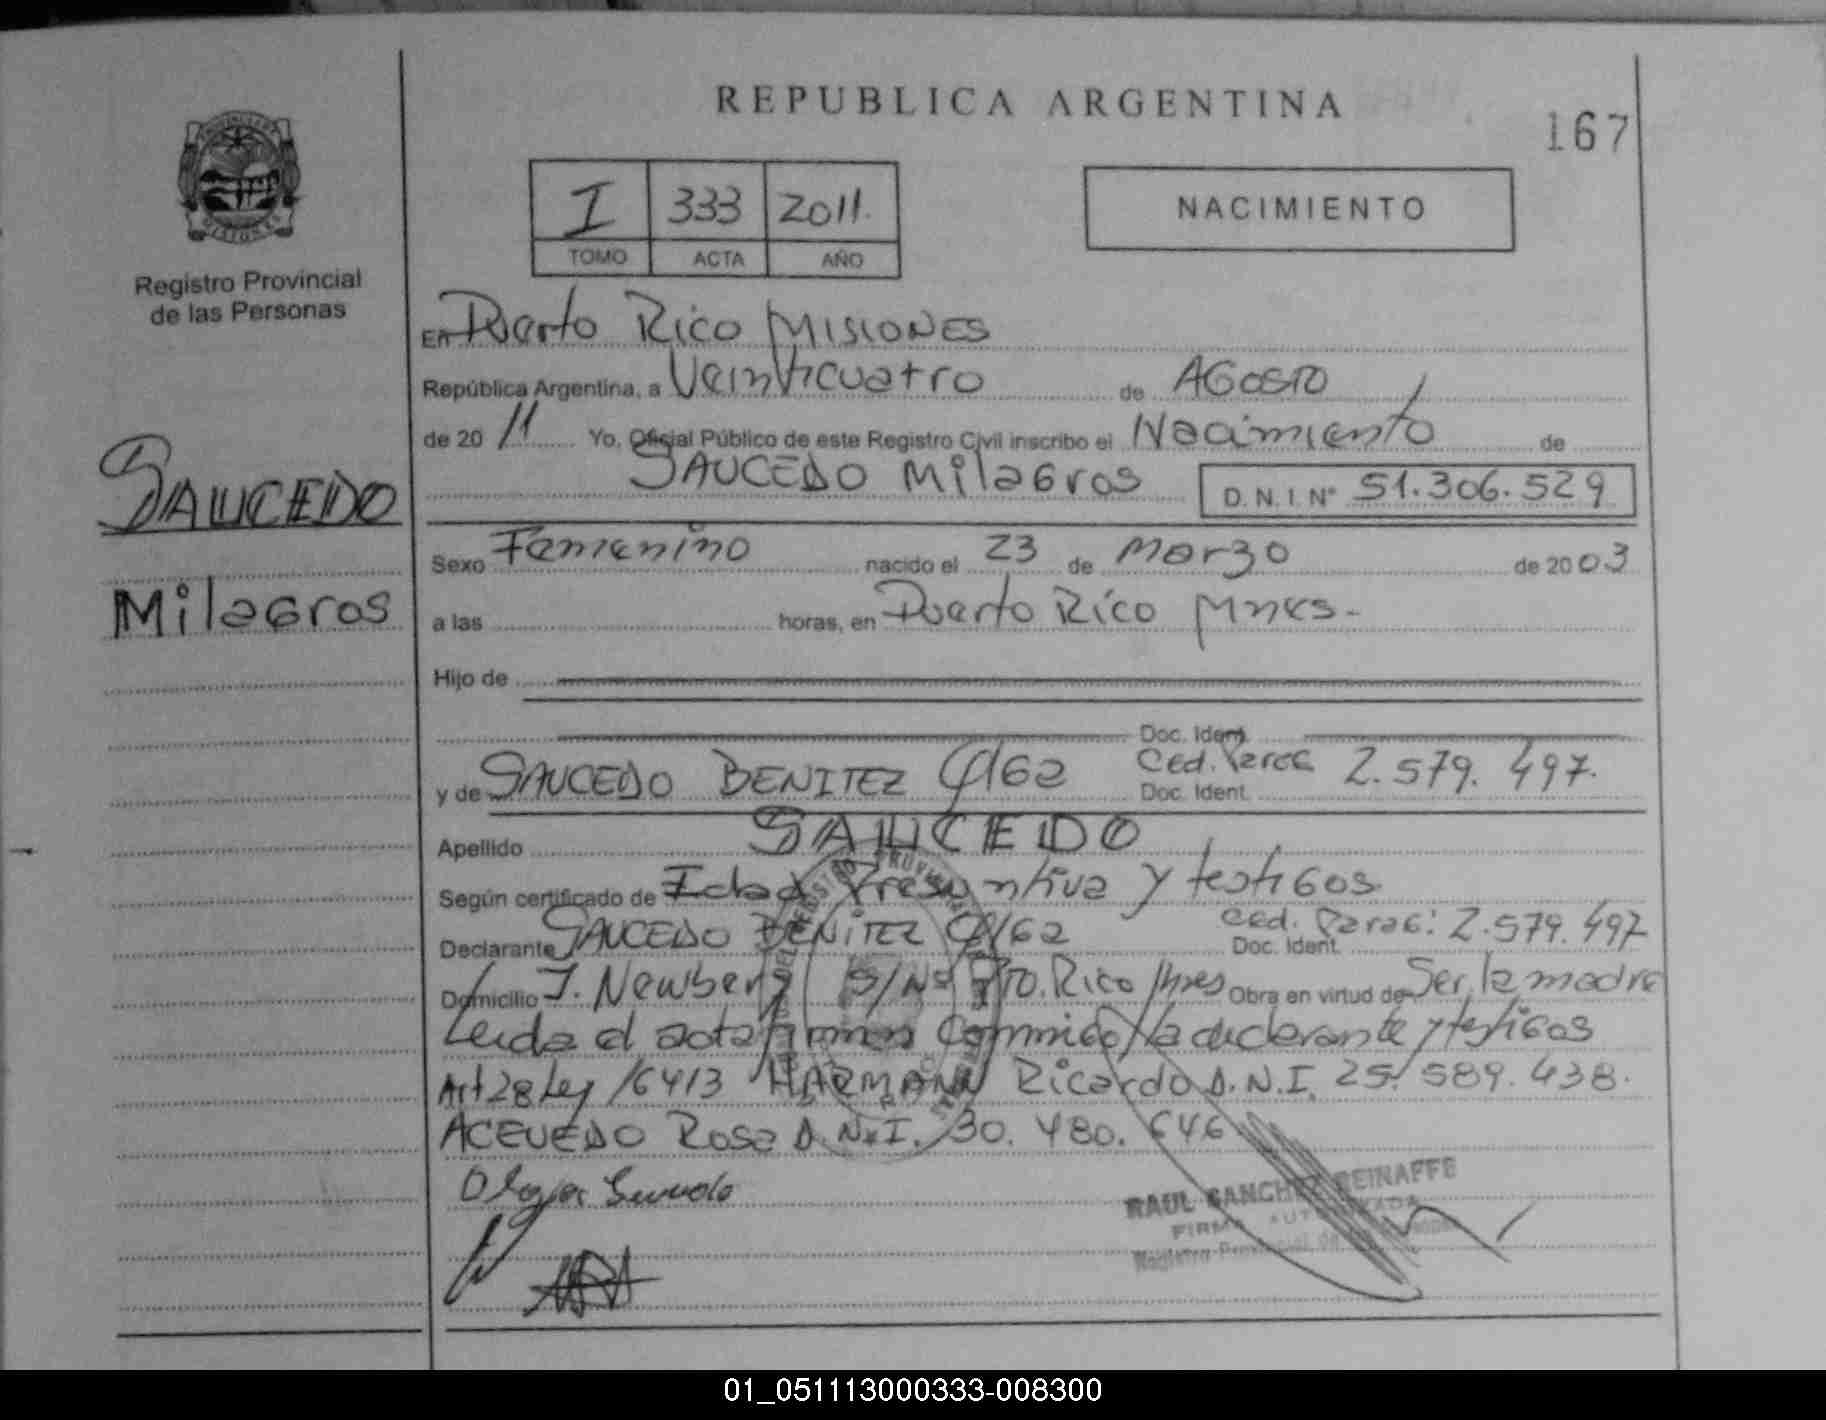 REPUBLICA ARGENTINA
167
PROVINCIA DE
MISIONES
Registro Provincial
de las Personas
I 333 2011.
TOMO ACTA AÑO
NACIMIENTO
En Puerto Rico MISIONES
República Argentina, a Veinticuatro de AGOSTO
de 20 11 Yo, Oficial Público de este Registro Civil inscribo el Nacimiento de
SAUCEDO Milagros D.N.I.N° 51.306.529
SAUCEDO
Milagros
Sexo Femenino nacido el 23 de Marzo de 2003
a las horas, en Puerto Rico Mnes-
Hijo de
Doc. Ident.
y de SAUCEDO BENITEZ Ced. Parag 2.579.497.
Doc. Ident.
Apellido SAUCEDO
Según certificado de Edad Presuntiva y testigos
Declarante SAUCEDO BENITEZ Ced. Parag: 2.579.497
Doc. Ident.
Domicilio J. Newbery S/Nº Pto. Rico Mnes Obra en virtud de Ser la madre
Leida el acta firman Conmigo la declarante y testigos
Art 28 Ley 16413 HARMANN Ricardo D.N.I. 25.589.438.
ACEVEDO Rosa D.N.I. 30.480.646
RAUL SANCHEZ REINAFFE
FIRMA AUTORIZADA
Registro Provincial de
01_051113000333-008300